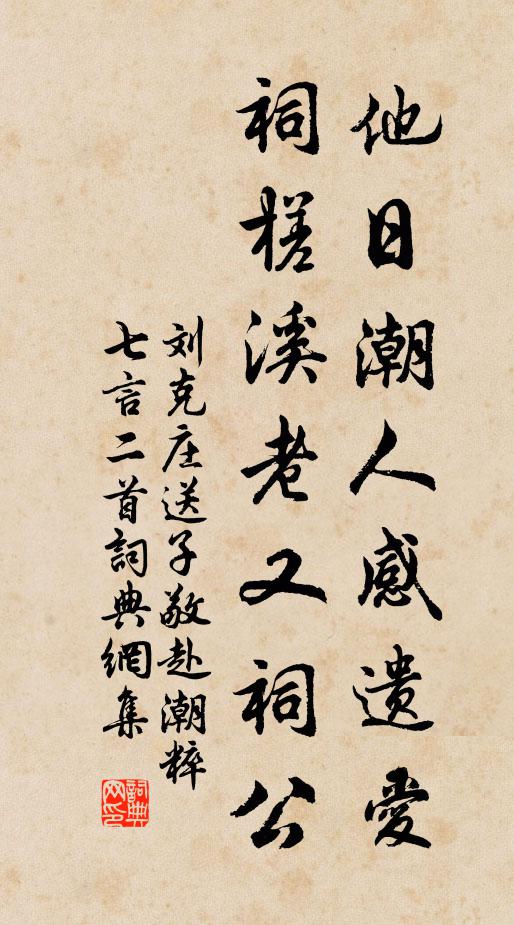 他日潮人感遗爱
祠槎溪老又祠公
刘克庄送子敬赴潮粹
七言二首詞典網集
詞典网印